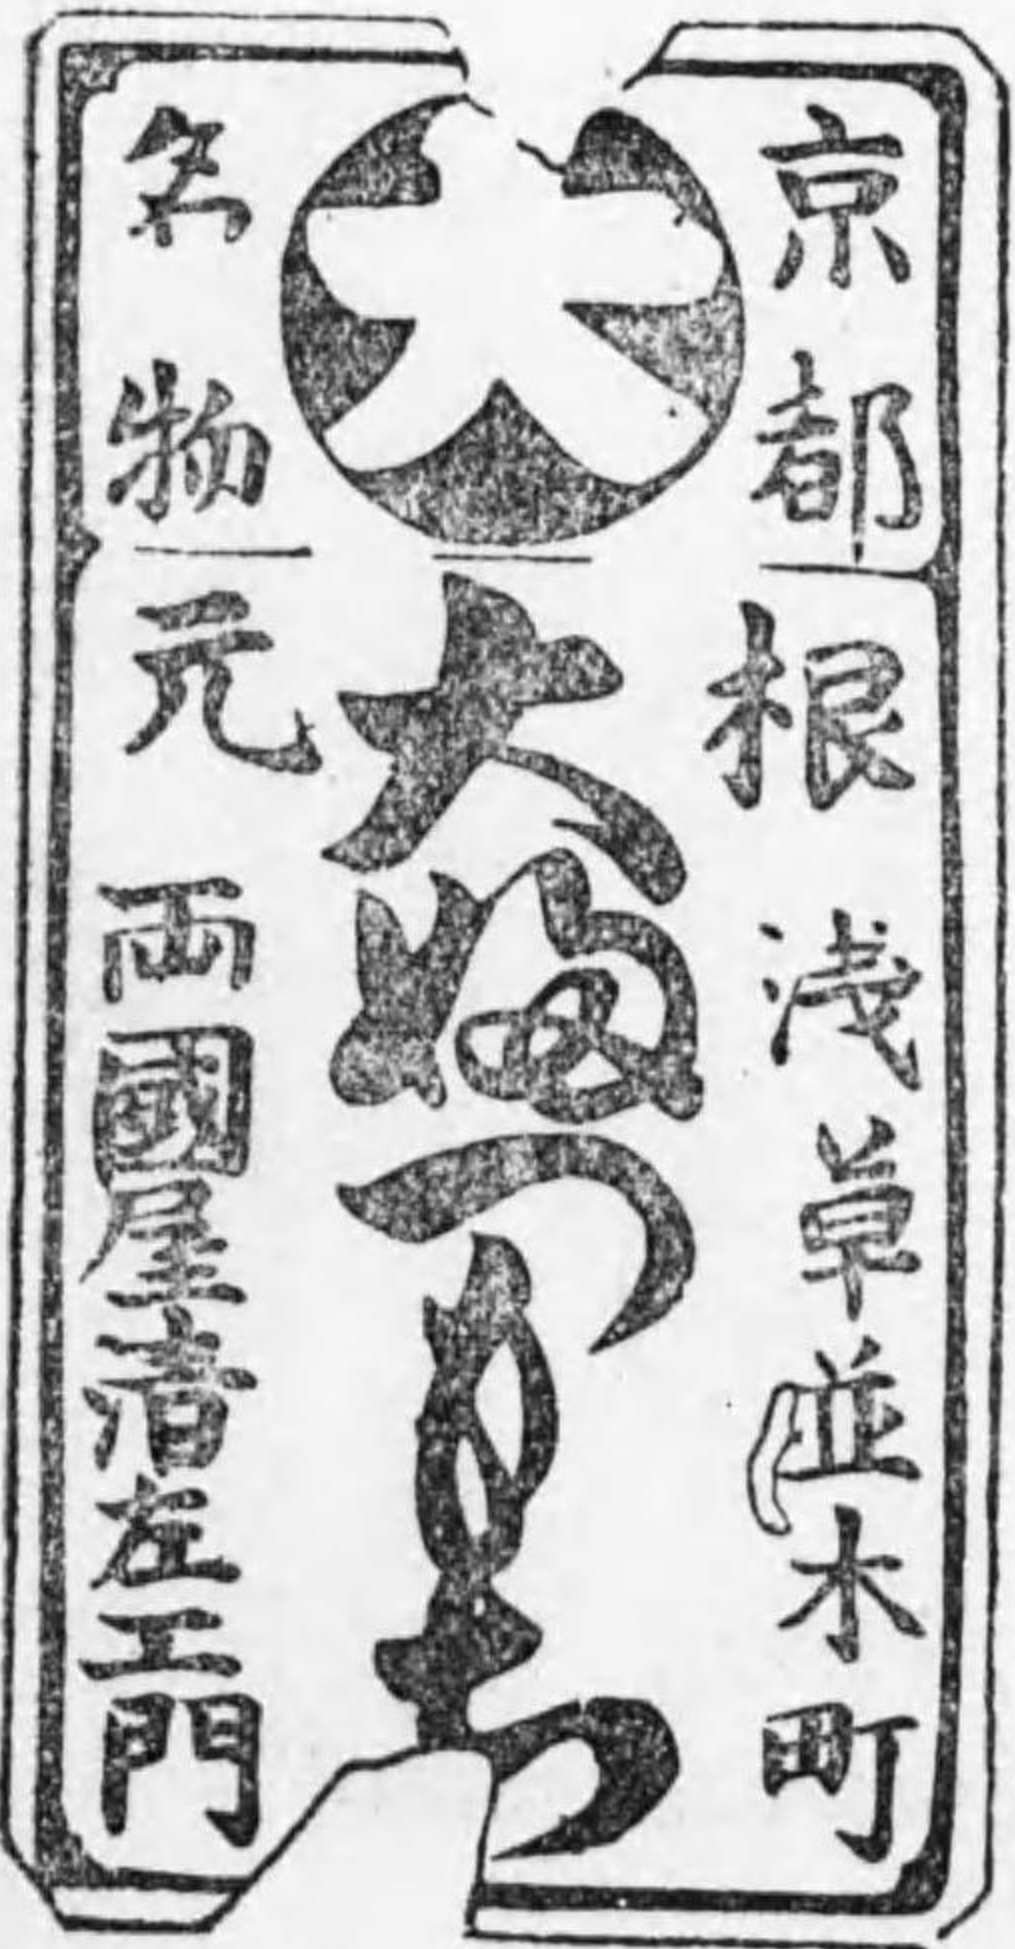 京都
根 浅草並木町
大
大婦つもち
名物
元 両國屋清左エ門